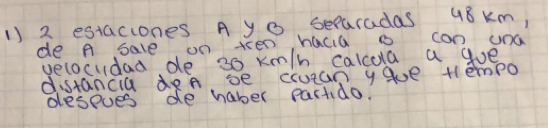 1) 2 estaciones A y B separadas 48 km,
de A sale un tren hacia B con una
velocidad de 30 km/h calcula a que
distancia de A se cruzan y que tiempo
despues de haber partido.